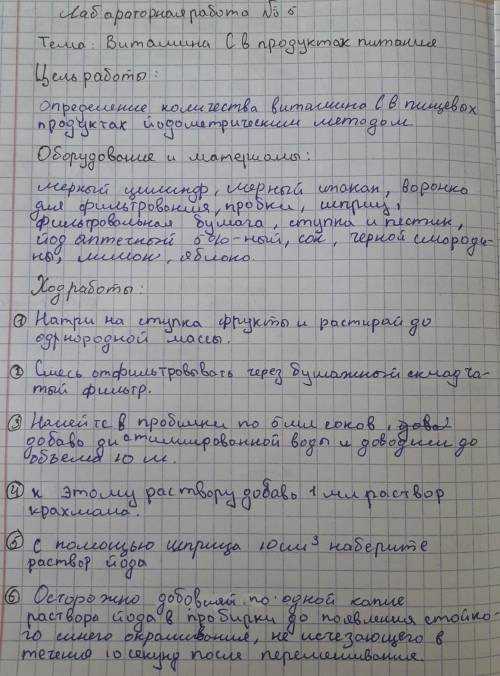 Лабараторная работа № 6
Тема: Витамина С в продуктах питания
Цель работы:
Определение количества витамина С в пищевых
продуктах йодометрическим методом.
Оборудование и материалы:
мерный цилиндр, мерный стакан, воронка
для фильтрования, пробки, шприц,
фильтровальная бумага, ступка и пестик,
йод аптечный 5%-ный, сок, черной смороди-
ны, лимон, яблоко.
Ход работы:
① Натри на ступка фрукты и растирай до
однородной массы.
② Смесь отфильтровывать через бумажный складча-
тый фильтр.
③ Налейте в пробирки по 5 мл соков,
добавь дистиллированной воды и доводим до
объема 10 мл.
④ К этому раствору добавь 1 мл раствор
крахмала.
⑤ С помощью шприца 10 см³ наберите
раствор йода
⑥ Осторожно добовляй по одной капле
раствора йода в пробирки до появления стойко-
го синего окрашивания, не исчезающего в
течения 10 секунд после перемешивания.